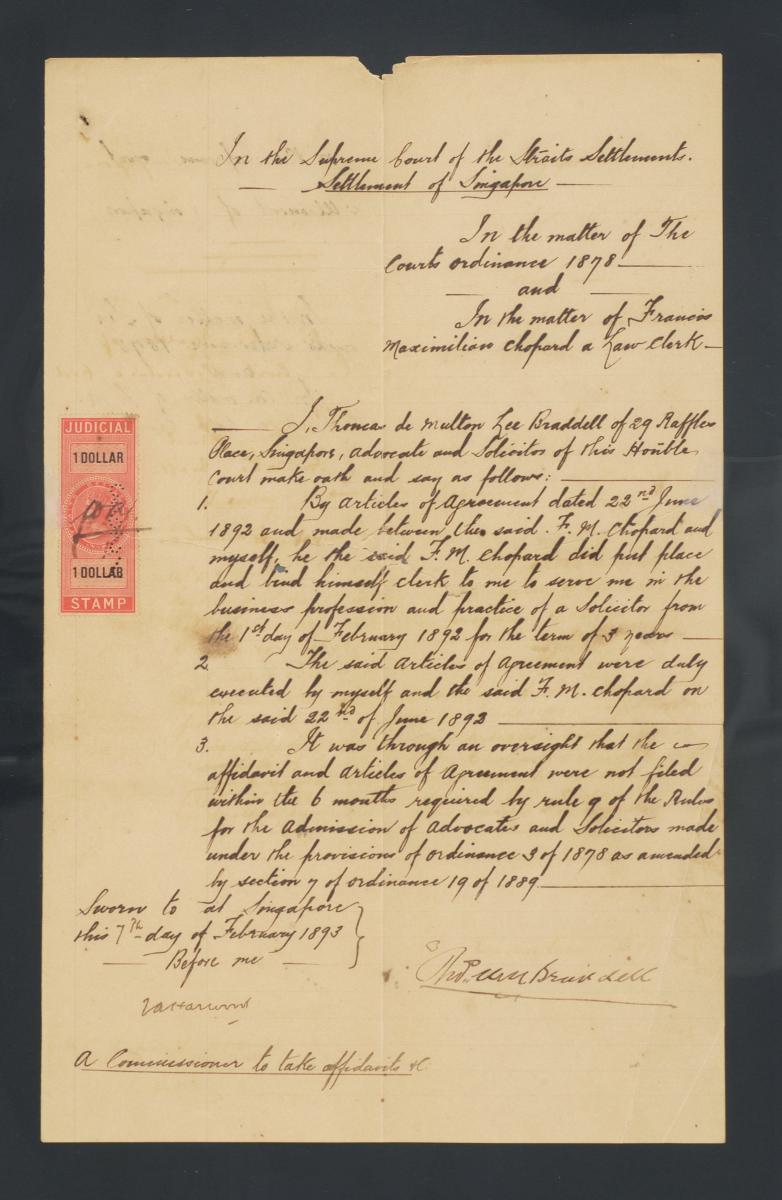 In the Supreme Court of the Straits Settlements.
Settlement of Singapore
In the matter of The
Courts Ordinance 1878
and
In the matter of Francis
Maximilian Chopard a Law Clerk
I, Thomas de Multon Lee Braddell of 29 Raffles
Place, Singapore, Advocate and Solicitor of this Hon'ble
Court make oath and say as follows:
1. By Articles of Agreement dated 22nd June
1892 and made between the said F. M. Chopard and
myself, he the said F. M. Chopard did put place
and bind himself clerk to me to serve me in the
business profession and practice of a Solicitor from
the 1st day of February 1892 for the term of 3 years
2. The said Articles of Agreement were duly
executed by myself and the said F. M. Chopard on
the said 22nd of June 1892
3. It was through an oversight that the
affidavit and Articles of Agreement were not filed
within the 6 months required by rule 9 of the Rules
for the Admission of Advocates and Solicitors made
under the provisions of Ordinance 3 of 1878 as amended
by section 7 of Ordinance 19 of 1889
Sworn to at Singapore
this 7th day of February 1893
Before me
Braddell
A Commissioner to take affidavits &c
JUDICIAL
1 DOLLAR
1 DOLLAR
STAMP